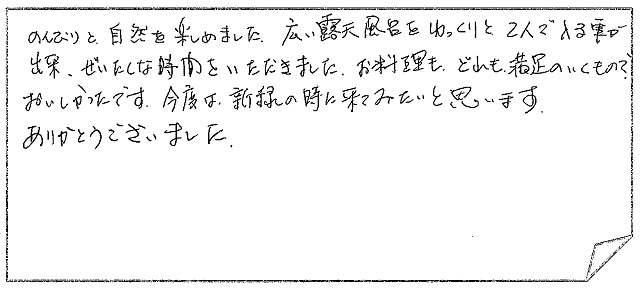 のんびりと、自然を楽しめました。広い露天風呂をゆっくりと2人で入る事が
出来、ぜいたくな時間をいただきました。お料理も、どれも、満足のいくもので
おいしかったです。今度は、新緑の時に来てみたいと思います。
ありがとうございました。